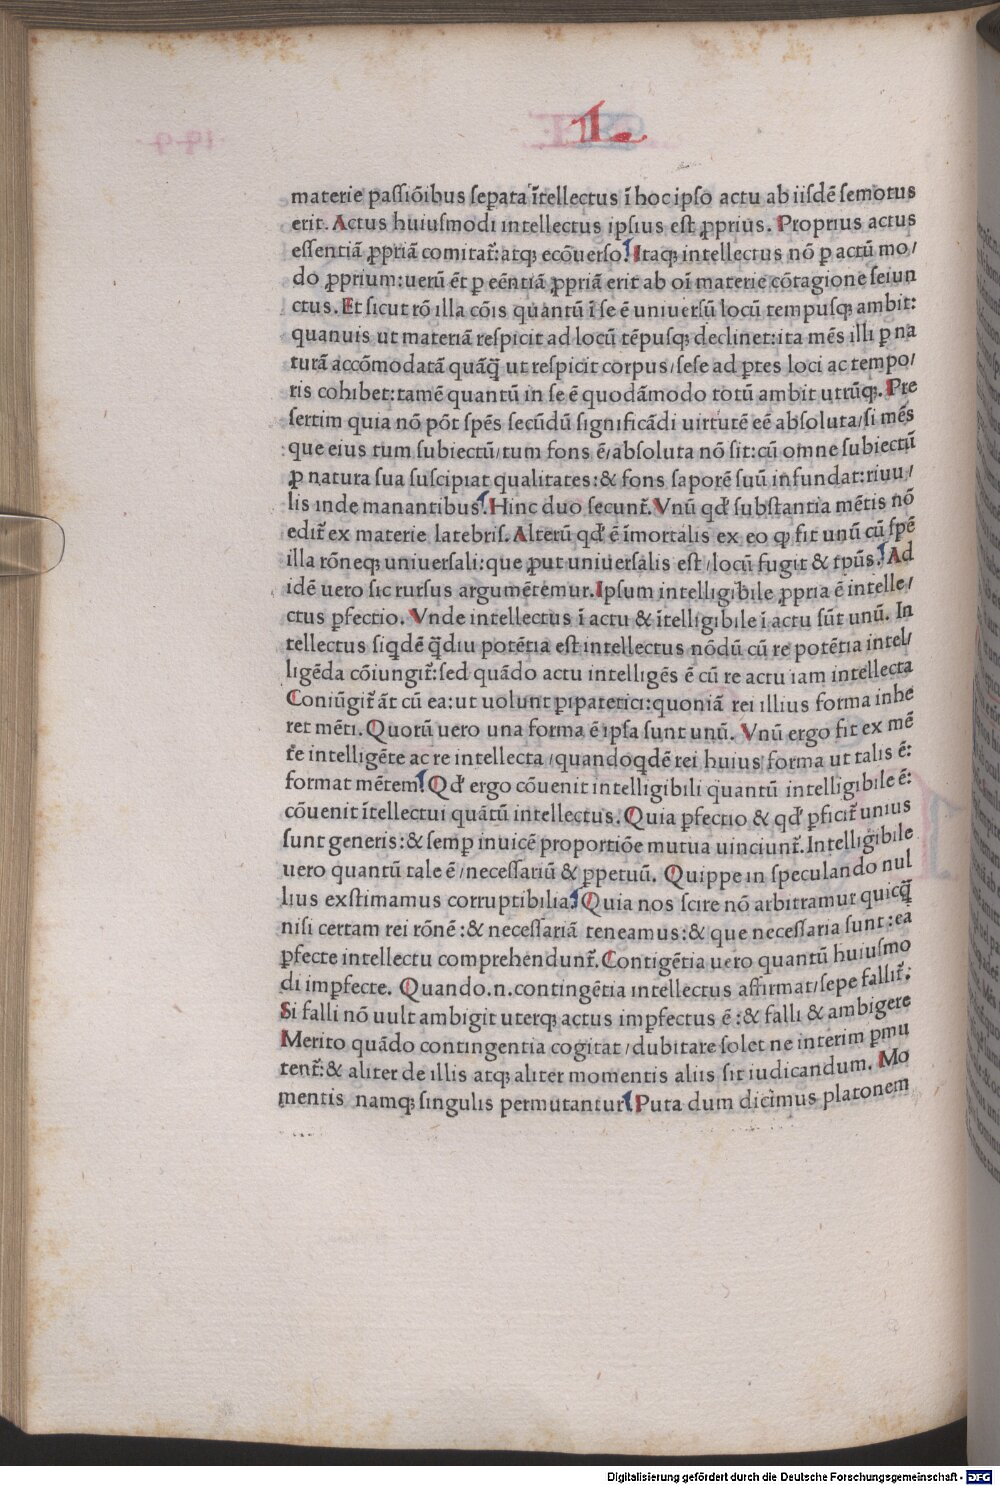 L.
materie paſſiōibus ſeꝑata ītellectus ī hoc ipſo actu ab iiſdē ſemotus
erit. Actus huiuſmodi intellectus ipſius eſt ꝓprius. Proprius actus
eſſentiā ꝓpriā comitat᷑: atqꝫ ecōuerſo. Itaqꝫ intellectus nō ꝑ actū mo/
do ꝓprium: uerū ēt ꝑ eēntiā ꝓpriā erit ab oī materie cōtagione ſeiun
ctus. Et ſicut rō illa cōis quantū ī ſe ē uniuerſū locū tempuſqꝫ ambit:
quanuis ut materiā reſpicit ad locū tēpuſqꝫ declinet: ita mēs illi ꝑ na
turā accōmodatā quāq̄ ut reſpicit corpus/ ſeſe ad ꝑtes loci ac tempo/
ris cohibet: tamē quantū in ſe ē quodāmodo totū ambit utrūqꝫ. Pre
ſertim quia nō pōt ſpēs ſecūdū ſignificādi uirtutē eē abſoluta/ ſi mēs
que eius tum ſubiectū/ tum fons ē/ abſoluta nō ſit: cū omne ſubiectū
ꝓ natura ſua ſuſcipiat qualitates: & fons ſaporē ſuū infundat: riuu/
lis inde manantibus. Hinc duo ſecunt᷑. Vnū qd' ſubſtantia mētis nō
edit᷑ ex materie latebris. Alterū qd' ē īmortalis ex eo qꝫ fit unū cū ſpē
illa rōneqꝫ uniuerſali: que ꝓut uniuerſalis eſt/ locū fugit & tpūs. Ad
idē uero ſic rurſus argumētemur. Ipſum intelligibile ꝓpria ē intelle/
ctus ꝑfectio. Vnde intellectus ī actu & ītelligibile ī actu ſūt unū. In
tellectus ſiqdē q̄diu potētia eſt intellectus nōdū cū re potētia intel/
ligēda cōiungit᷑: ſed quādo actu intelligēs ē cū re actu iam intellecta
Coniūgit᷑ āt cū ea: ut uolunt ꝑipatetici: quoniā rei illius forma inhe
ret mēti. Quorū uero una forma ē ipſa ſunt unū. Vnū ergo fit ex mē
te intelligēte ac re intellecta/ quandoqdē rei huius forma ut talis ē:
format mētem. Qd' ergo cōuenit intelligibili quantū intelligibile ē:
cōuenit ītellectui quātū intellectus. Quia ꝑfectio & qd' ꝑficit᷑ unius
ſunt generis: & ſemꝑ inuicē proportiōe mutua uinciunt᷑. Intelligibile
uero quantū tale ē/ neceſſariū & ꝑpetuū. Quippe in ſpeculando nul
lius exſtimamus corruptibilia. Quia nos ſcire nō arbitramur quicq̄
niſi certam rei rōnē: & neceſſariā teneamus: & que neceſſaria ſunt: ea
ꝑfecte intellectu comprehendunt᷑. Contigētia uero quantū huiuſmo
di imꝑfecte. Quando.n.contingētia intellectus affirmat/ ſepe fallit᷑:
Si falli nō uult ambigit uterqꝫ actus imꝑfectus ē: & falli & ambigere
Merito quādo contingentia cogitat/ dubitare ſolet ne interim ꝑmu
tent᷑: & aliter de illis atqꝫ aliter momentis aliis ſit iudicandum. Mo
mentis namqꝫ ſingulis permutantur. Puta dum dicimus platonem
Digitalisierung gefördert durch die Deutsche Forschungsgemeinschaft - DFG